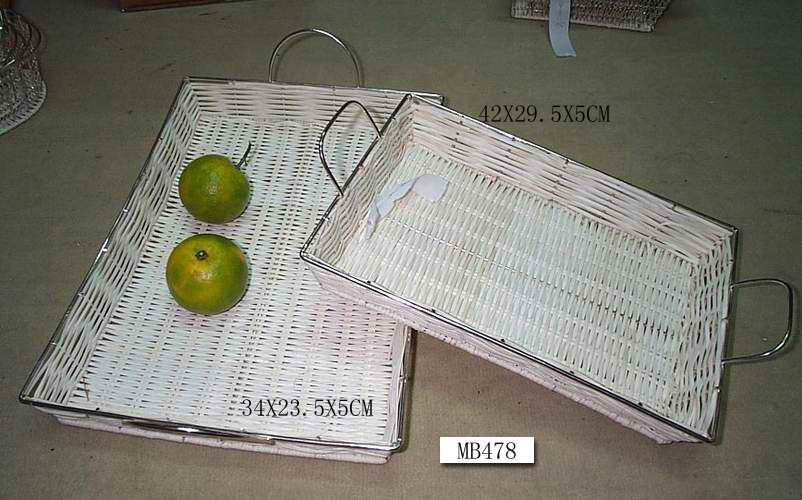 42X29.5X5CM
34X23.5X5CM
MB478